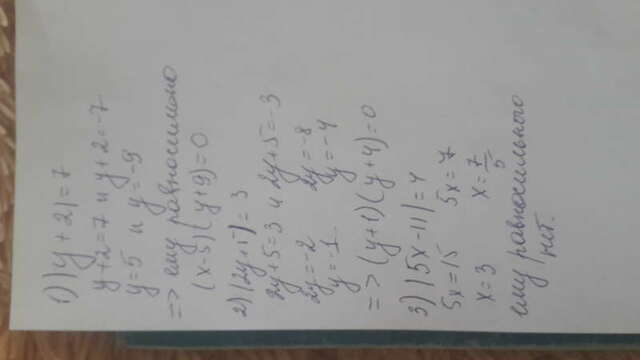 1) |y+2|=7
y+2=7 и y+2=-7
y=5 и y=-9
=> ему равносильно
(x-5)(y+9)=0
2) |2y+5|=3
2y+5=3 и 2y+5=-3
2y=-2 2y=-8
y=-1 y=-4
=> (y+1)(y+4)=0
3) |5x-11|=4
5x=15 5x=7
x=3 x=7/5
ему равносильного
нет.